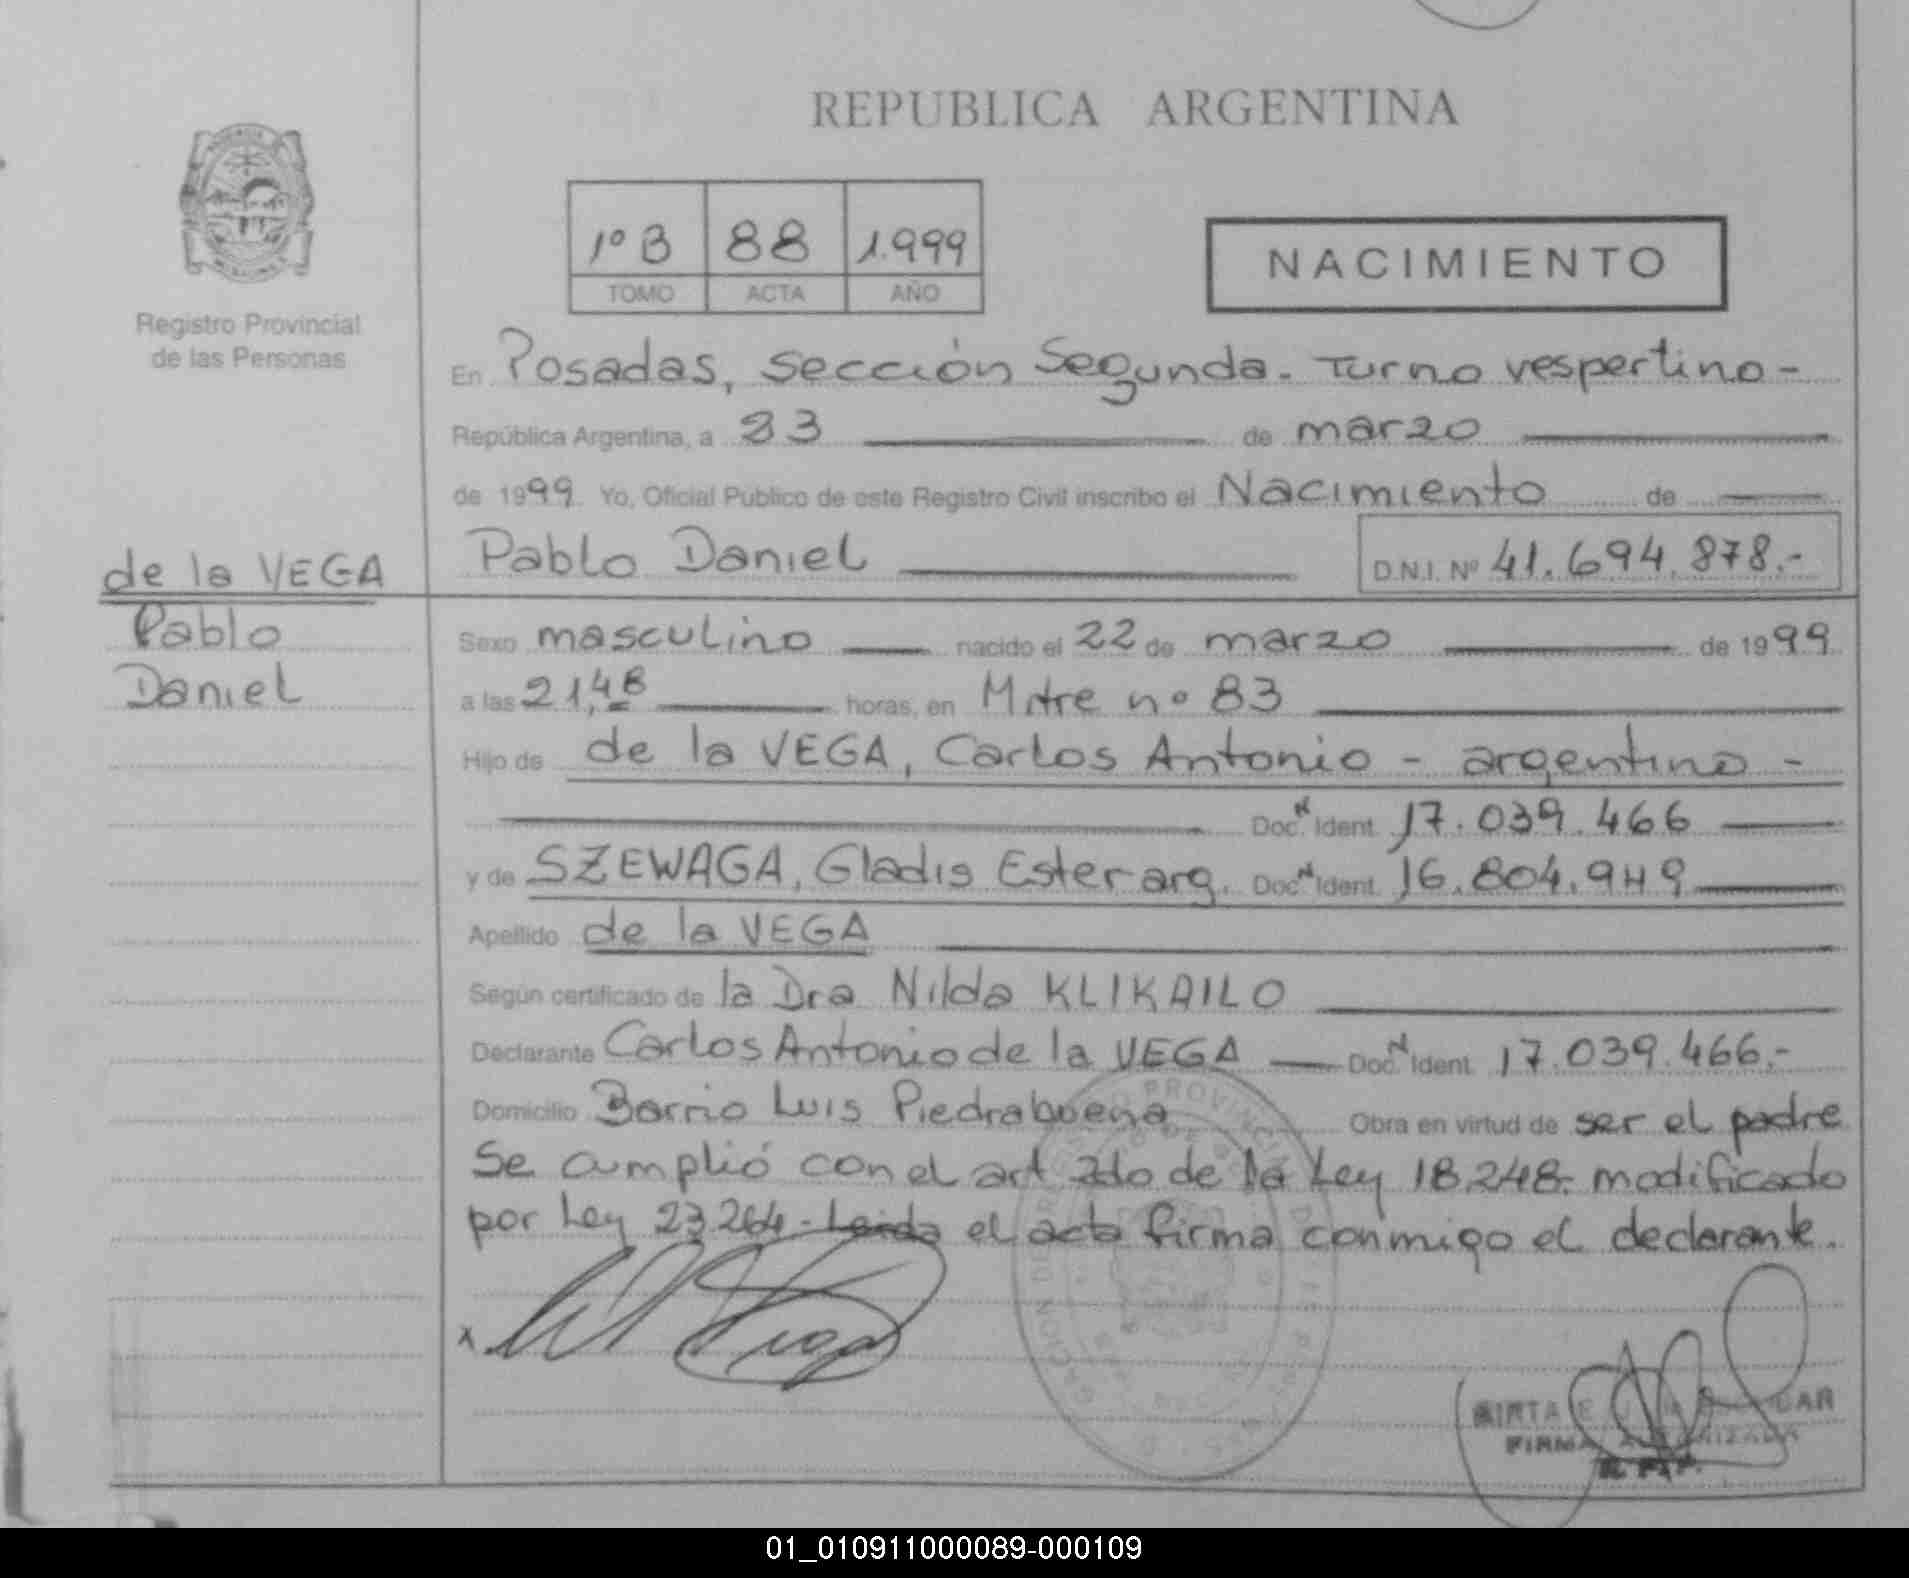 REPUBLICA ARGENTINA
1º B 88 1.999
TOMO ACTA AÑO
NACIMIENTO
Registro Provincial
de las Personas
En Posadas, sección Segunda. Turno vespertino -
República Argentina, a 23 de marzo
de 1999. Yo, Oficial Público de este Registro Civil inscribo el Nacimiento de
Pablo Daniel D.N.I. Nº 41.694.878.-
de la VEGA
Pablo
Daniel
Sexo masculino nacido el 22 de marzo de 1999
a las 21,48 horas, en Mitre nº 83
Hijo de de la VEGA, Carlos Antonio - argentino -
Doc. Ident. 17.039.466
y de SZEWAGA, Gladis Ester arg. Doc. Ident. 16.804.949
Apellido de la VEGA
Según certificado de la Dra Nilda KLIKAILO
Declarante Carlos Antonio de la VEGA Doc. Ident. 17.039.466.-
Domicilio Barrio Luis Piedrabuena Obra en virtud de ser el padre
Se cumplió con el art 2do de la Ley 18.248. modificado
por Ley 23.264. Leida el acta firma conmigo el declarante.
x
FIRMA AUTORIZADA
01_010911000089-000109